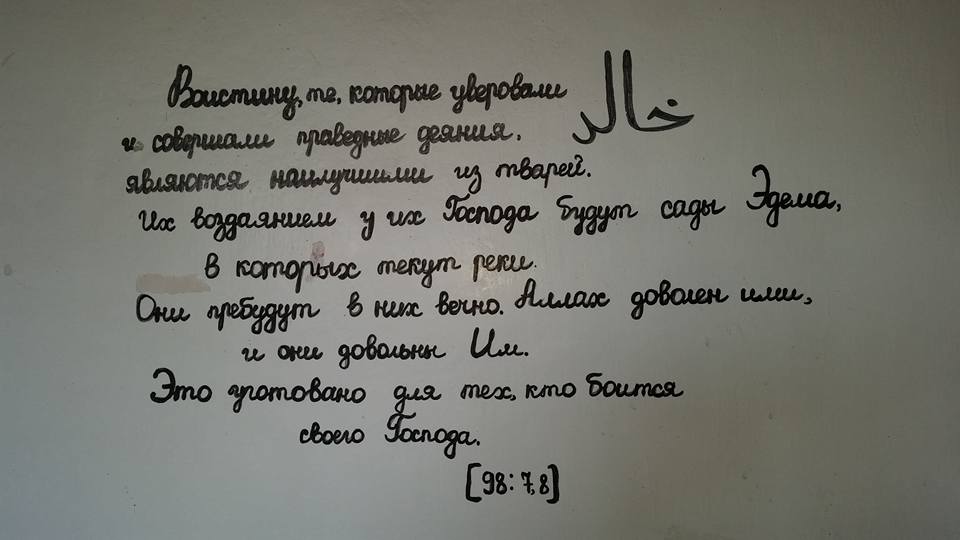 Воистину, те, которые уверовали
خالد
и совершали праведные деяния,
являются наилучшими из тварей.
Их воздаянием у их Господа будут сады Эдема,
в которых текут реки.
Они пребудут в них вечно. Аллах доволен ими,
и они довольны Им.
Это уготовано для тех, кто боится
своего Господа.
[98:7,8]